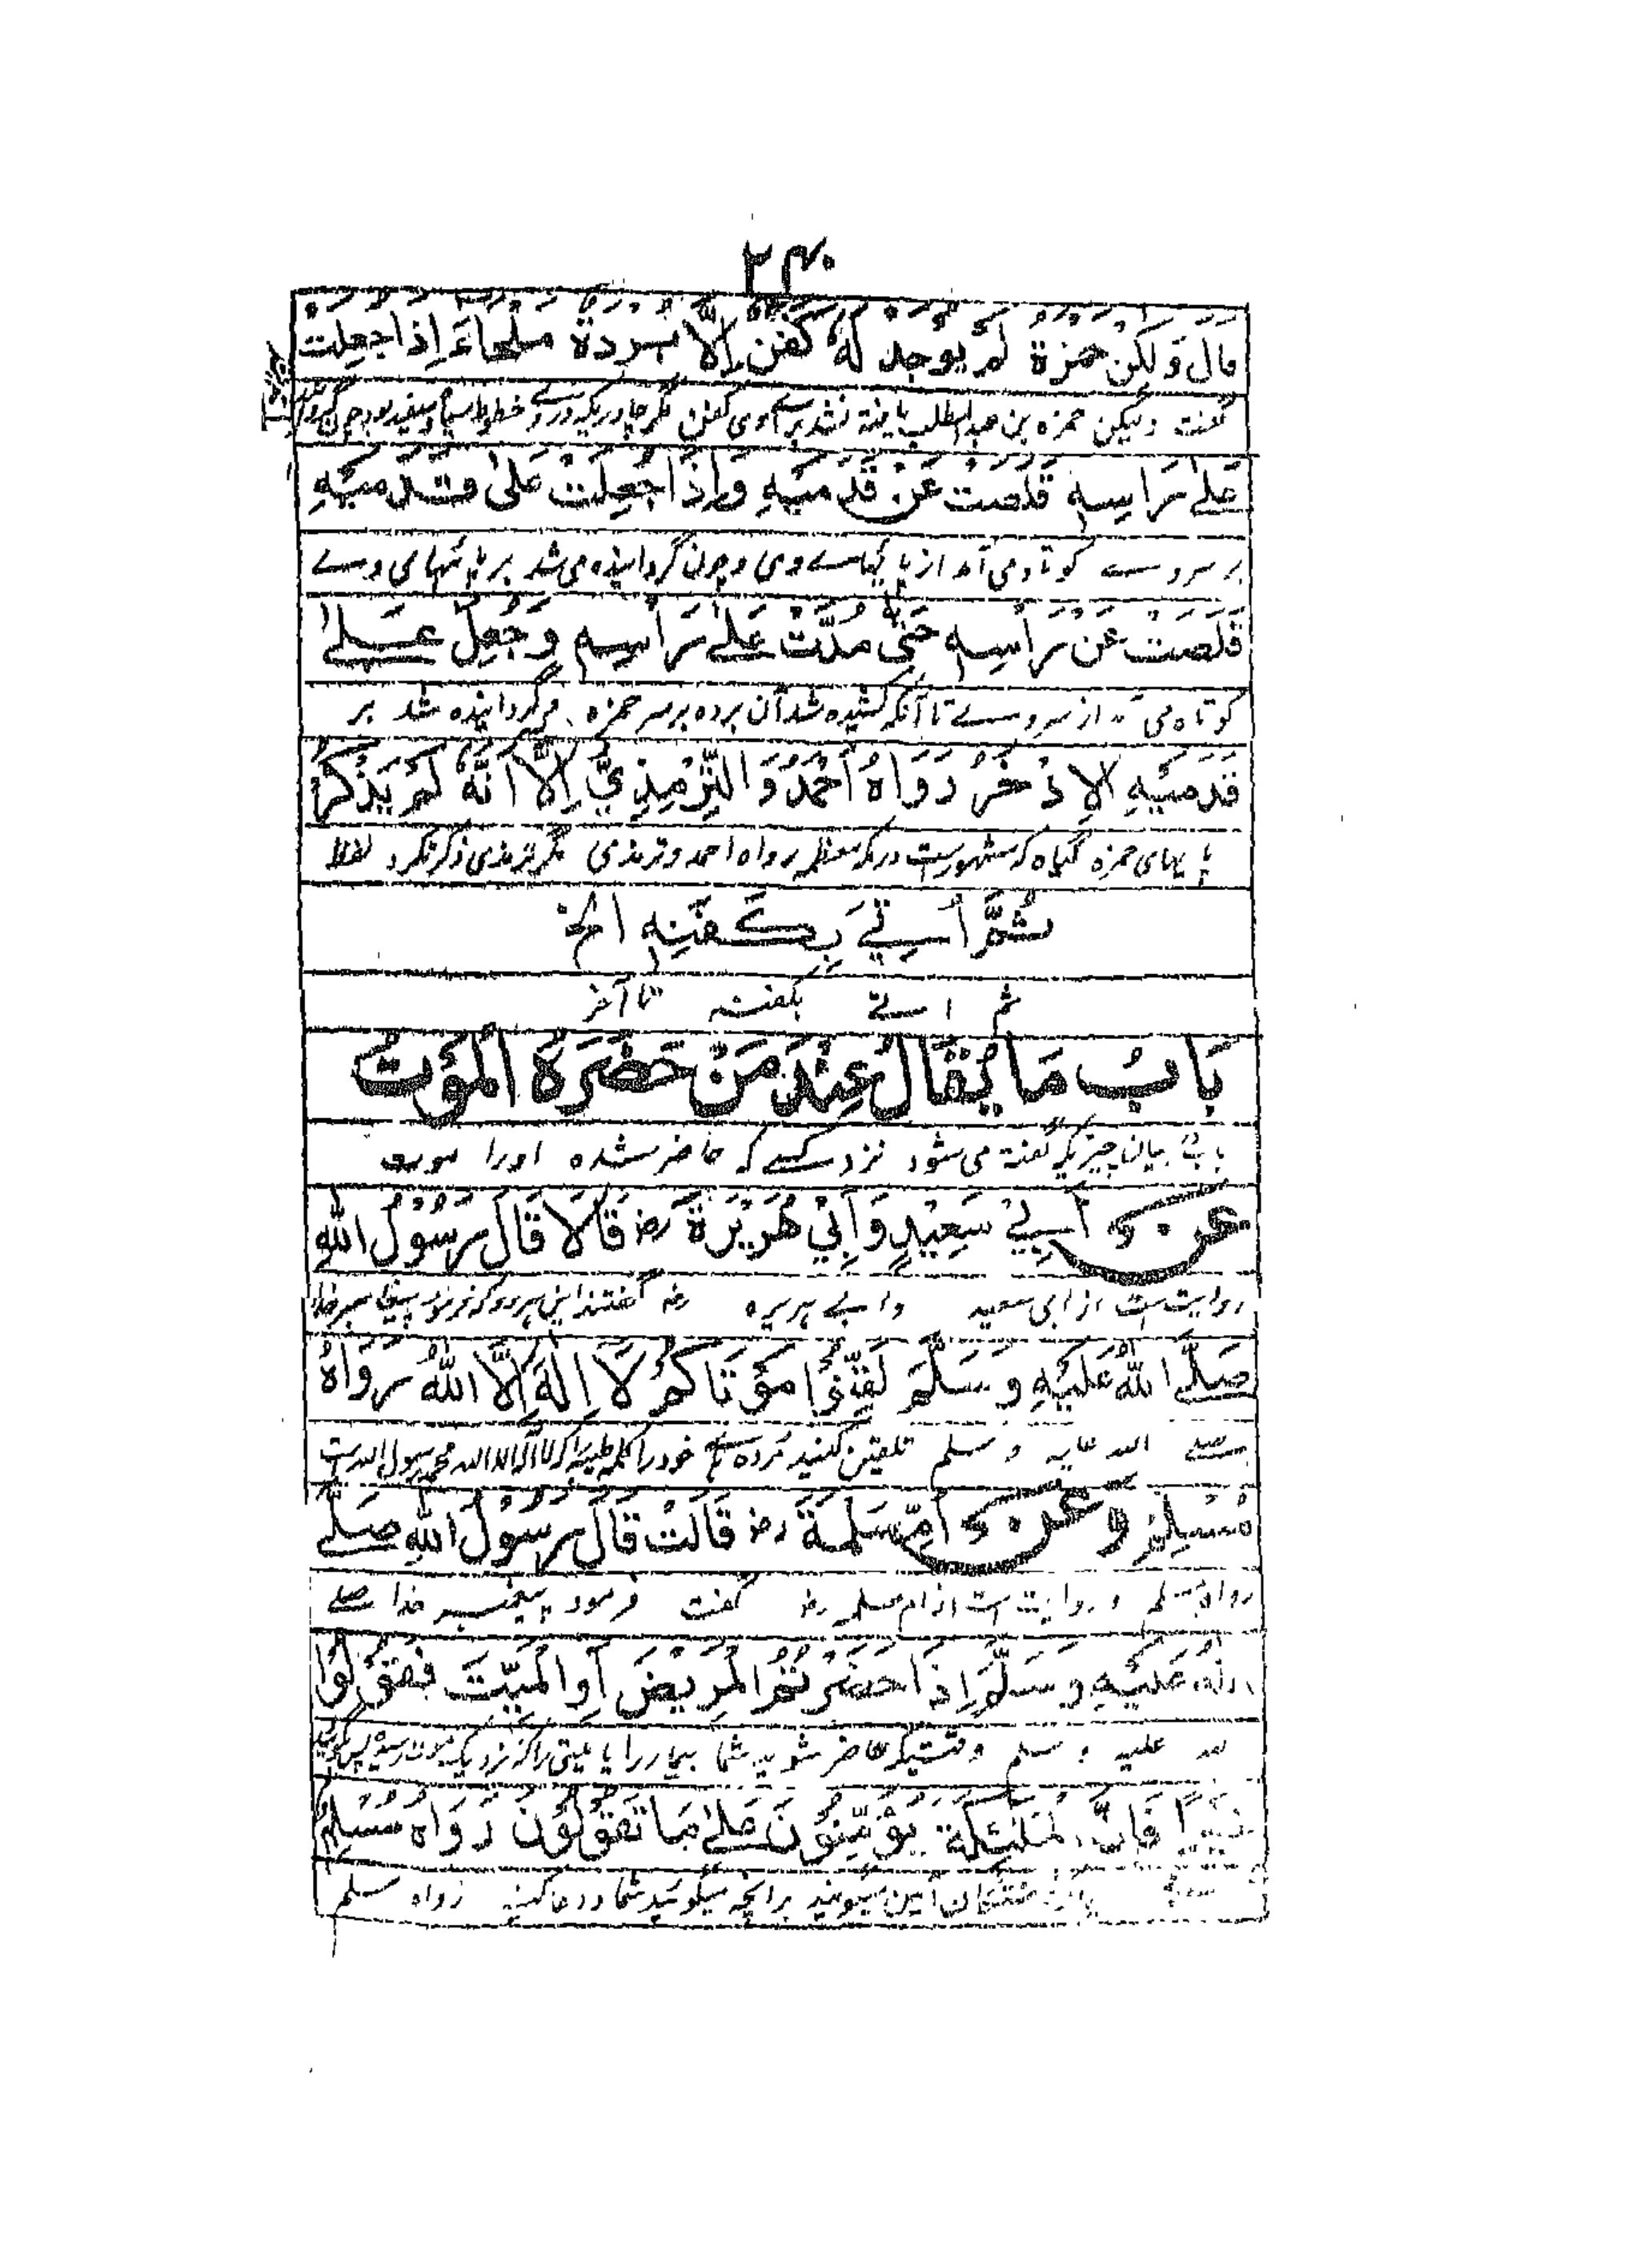 ۲۴۰
قَالَ وَلٰكِنْ حَمْزَةُ لَمْ يُوجَدْ لَهُ كَفَنٌ إِلَّا بُرْدَةٌ مَلْحَاءُ إِذَا جُعِلَتْ
گفت ولیکن حمزه بن عبدالمطلب یافته نشد برای وی کفن مگر چادریکه در وے خطوط سیاه و سفید بود چون
عَلَىٰ رَأْسِهِ قَلَصَتْ عَنْ قَدَمَيْهِ وَإِذَا جُعِلَتْ عَلَىٰ قَدَمَيْهِ
بر سر وے کوتاه می آمد از پائیهاے وی و چون گردانیده می شد بر پائیهای وے
قَلَصَتْ عَنْ رَأْسِهِ حَتّٰى مُدَّتْ عَلَىٰ رَأْسِهِ وَجُعِلَ عَلَىٰ
کوتاه می از سر وے تا آنکه کشیده شد آن برده بر سر حمزه و گردانیده شد بر
قَدَمَيْهِ الْإِذْخَرُ رَوَاهُ أَحْمَدُ وَالتِّرْمِذِيُّ إِلَّا أَنَّهُ لَمْ يَذْكُرْ
پایهای حمزه گیاه که مشهورست در مکه معظمه رواه احمد و ترمذی مگر ترمذی ذکر نکرد لفظ
ثُمَّ أُتِيَ بِكَفَنِهِ الخ
ثم اتے بکفنه تا آخر
بَابُ مَا يُقَالُ عِنْدَ مَنْ حَضَرَهُ الْمَوْتُ
باب بیان چیزیکه گفته می شود نزد کسے که حاضر شده اورا موت
عَنْ أَبِيْ سَعِيْدٍ وَأَبِيْ هُرَيْرَةَ رض قَالَا قَالَ رَسُوْلُ اللهِ
روایت ست از ابی سعید و ابے هریره رض گفتند این هر دو که فرمود پیغامبر خدا
صَلَّى اللهُ عَلَيْهِ وَسَلَّمَ لَقِّنُوْا مَوْتَاكُمْ لَا إِلٰهَ إِلَّا اللهُ رَوَاهُ
صلے الله علیه و سلم تلقین کنید مرده هاے خود را کلمه طیبه که لا اله الا الله محمد رسول الله ست
مُسْلِمٌ وَعَنْ أُمِّ سَلَمَةَ رض قَالَتْ قَالَ رَسُوْلُ اللهِ صَلَّى
رواه مسلم و روایت ست از ام سلمه رض گفت فرمود پیغمبر خدا صلے
اللهُ عَلَيْهِ وَسَلَّمَ إِذَا حَضَرْتُمُ الْمَرِيْضَ أَوِ الْمَيِّتَ فَقُوْلُوْا
الله علیه و سلم وقتیکه حاضر شوید شما بیمار را یا میتی را که نزدیک بموت رسیده پس بگوئید
خَيْرًا فَإِنَّ الْمَلٰئِكَةَ يُؤَمِّنُوْنَ عَلَىٰ مَا تَقُوْلُوْنَ رَوَاهُ مُسْلِمٌ
آمین میگویند برانچه میگوئید شما در دعا رواه مسلم